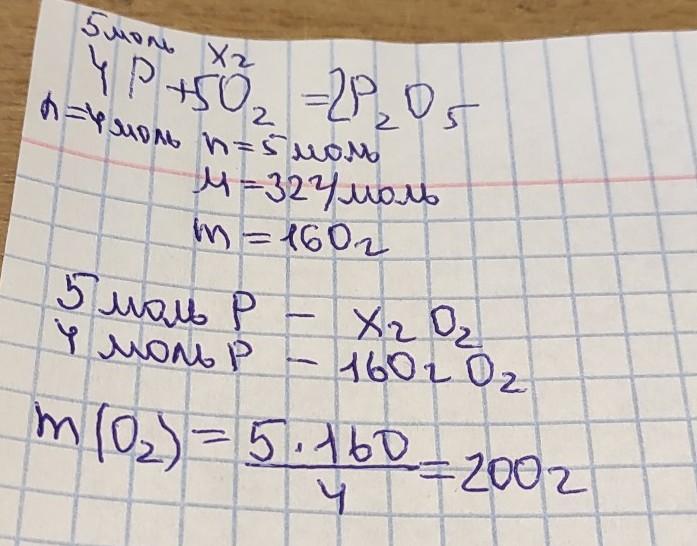 5 моль x г
4P + 5O₂ = 2P₂O₅
n = 4 моль n = 5 моль
M = 32 г/моль
m = 160 г
5 моль P – x г O₂
4 моль P – 160 г O₂
m(O₂) = 5 · 160 / 4 = 200 г